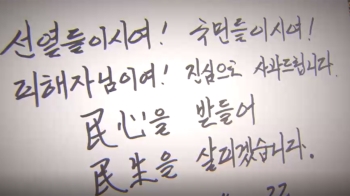 선열들이시여! 국민들이시여!
피해자님이여! 진심으로 사과드립니다.
民心을 받들어
民生을 살피겠습니다.
22